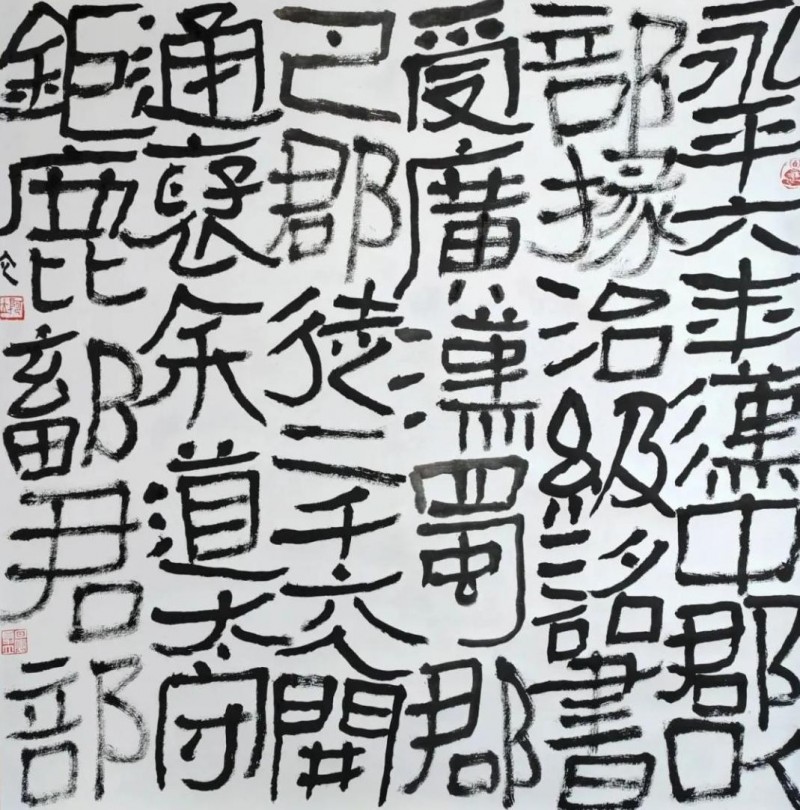 永平六年漢中郡以
部掾治級詔書
受廣漢蜀郡
巴郡徒二千六人開
通褒余道太守
鉅鹿鄐君部